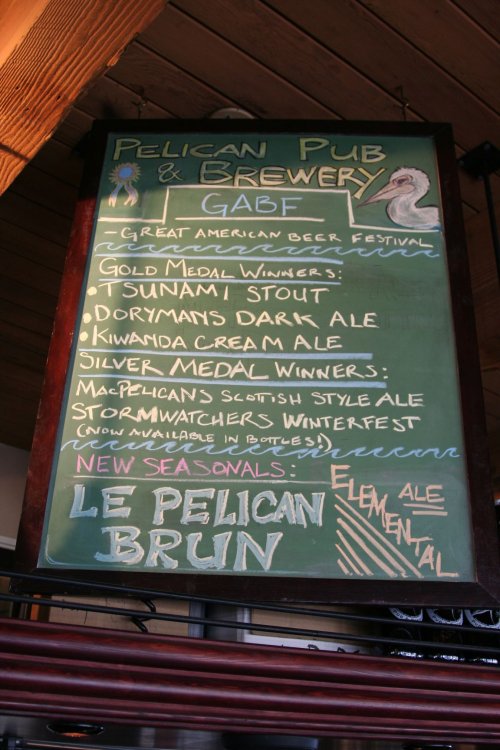 PELICAN PUB
& BREWERY
GABF
- GREAT AMERICAN BEER FESTIVAL
GOLD MEDAL WINNERS:
• TSUNAMI STOUT
• DORYMANS DARK ALE
• KIWANDA CREAM ALE
SILVER MEDAL WINNERS:
MACPELICAN'S SCOTTISH STYLE ALE
STORMWATCHERS WINTERFEST
(NOW AVAILABLE IN BOTTLES!)
NEW SEASONALS:
LE PELICAN
BRUN
ELEMENTAL
ALE